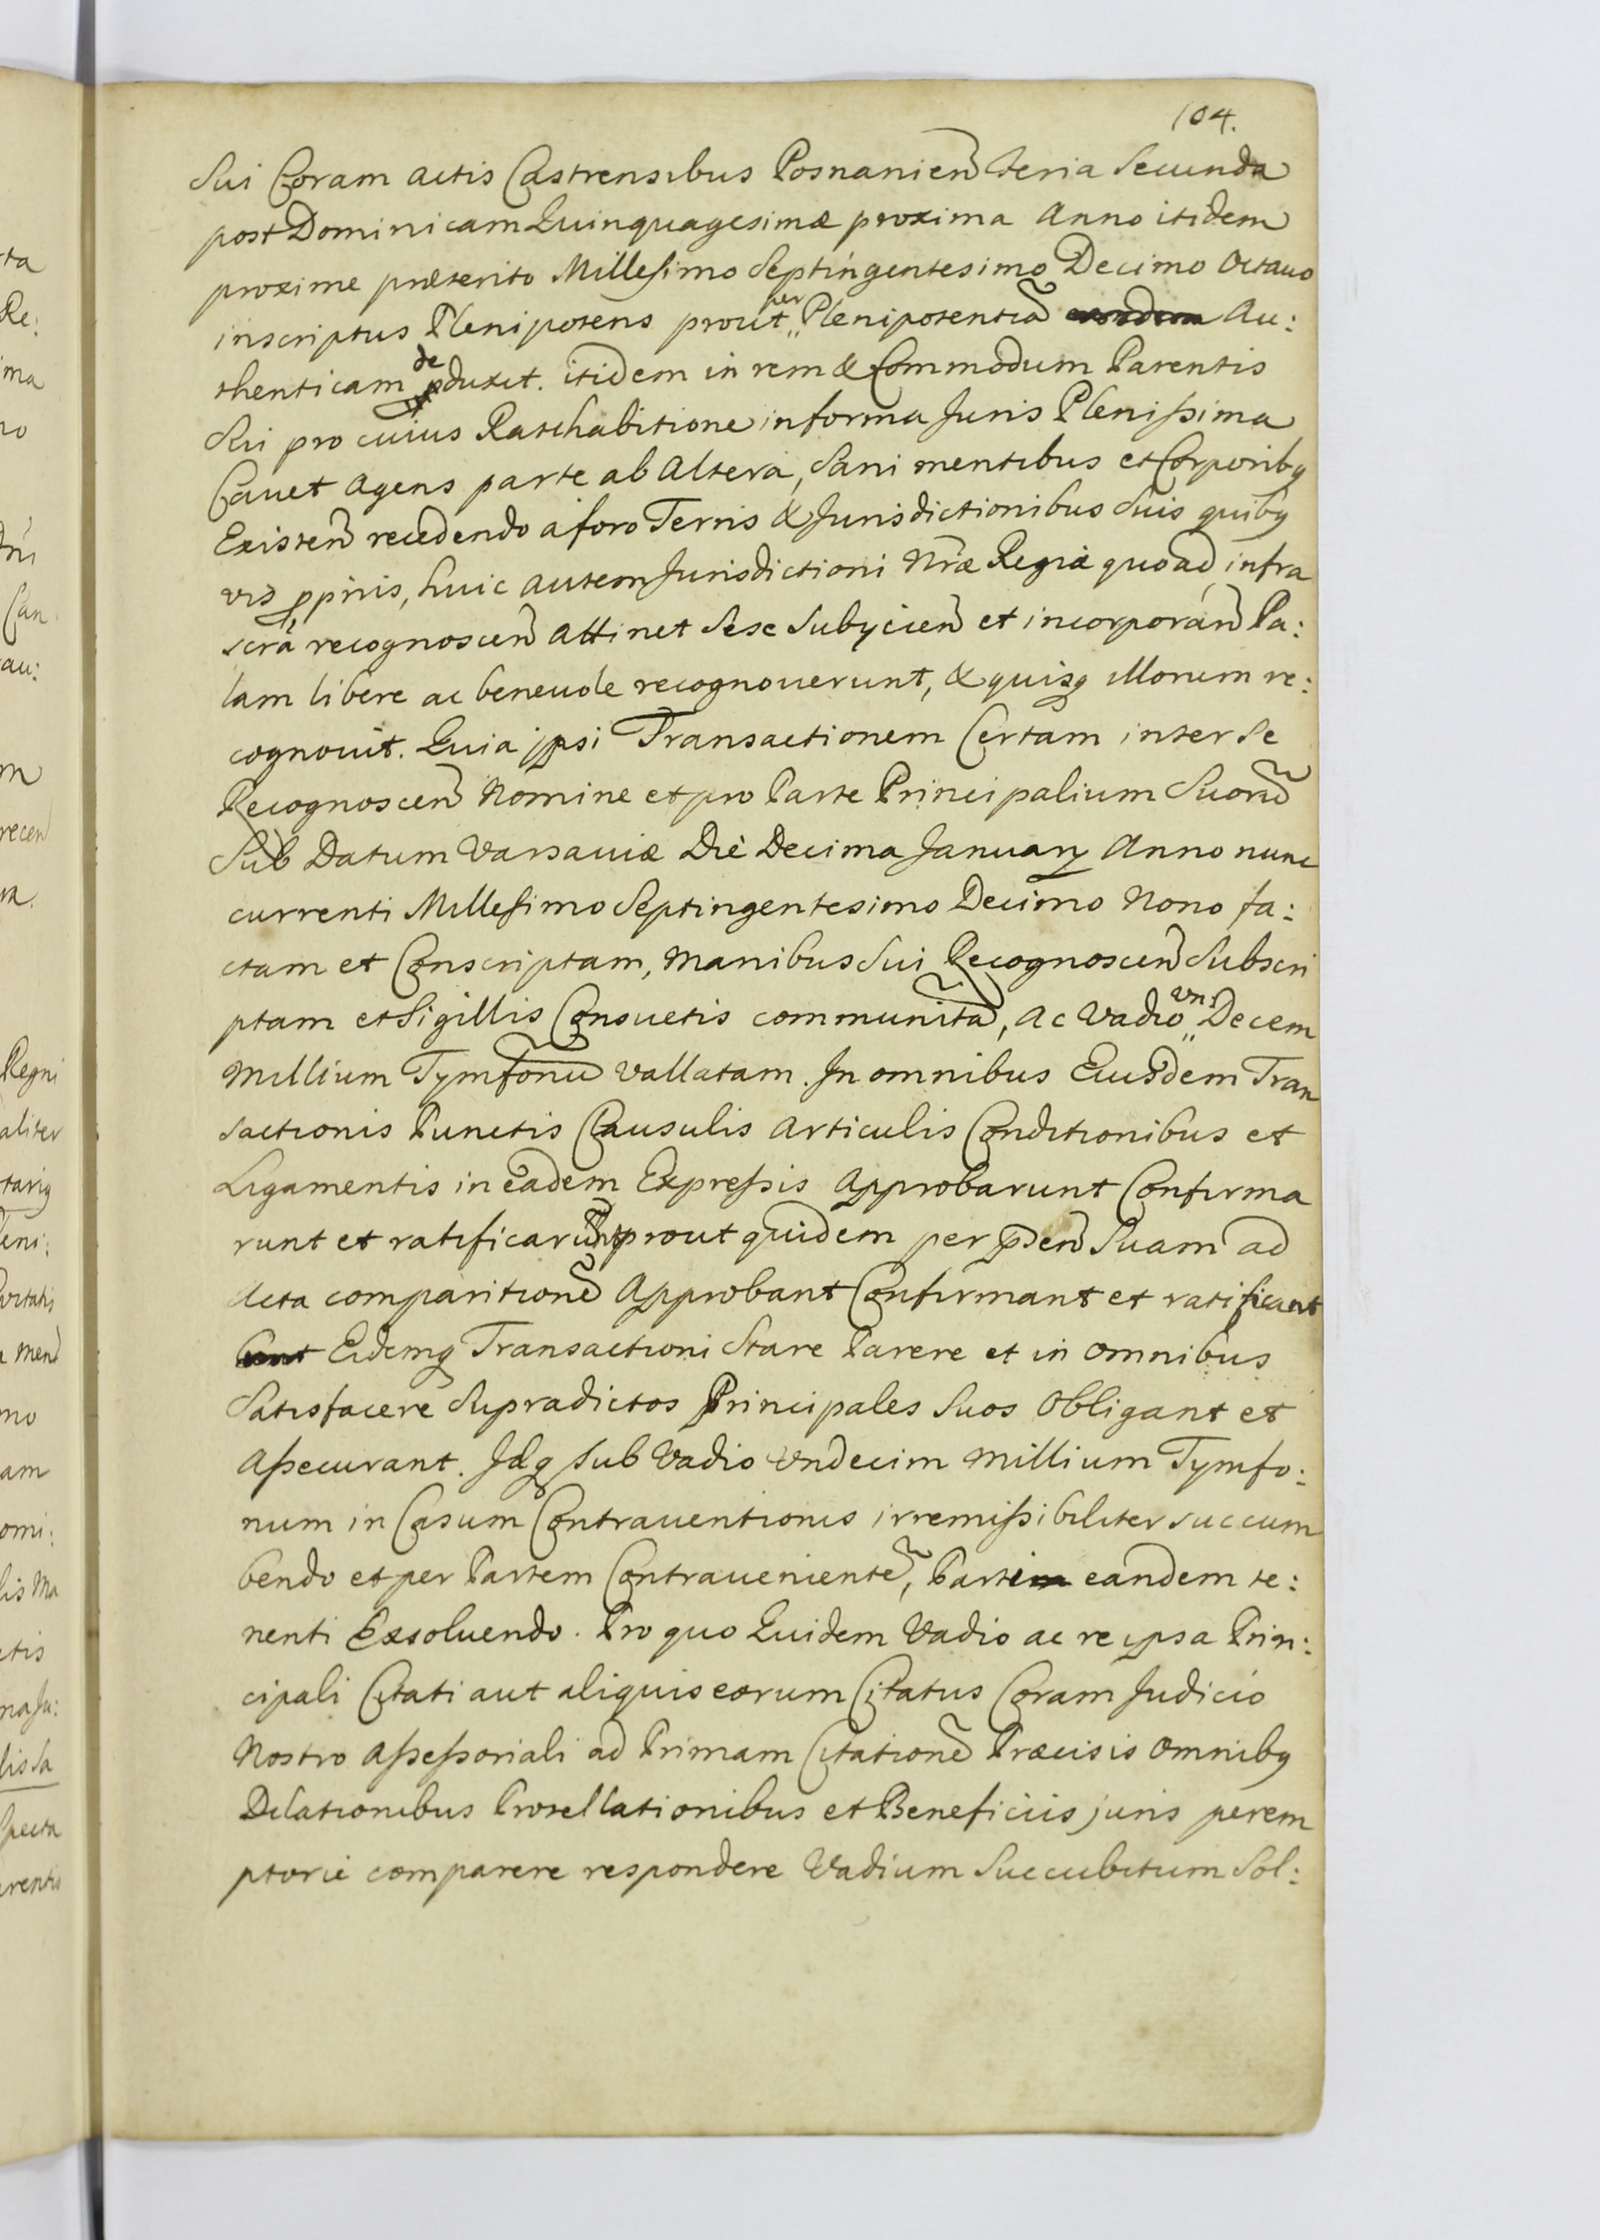 104.
Sui Coram actis Castrensibus Posnanien Feria Secunda
post Dominicam Quinquagesimæ proxima Anno itidem
proxime præterito Millesimo Septingentesimo Decimo Octauo
inscriptus Plenipotens prout per Plenipotentiã Au:
thenticam deduxit. itidem in rem & Commodum Parentis
Sui pro cuius Ratihabitione in forma Juris Plenissima
Cauet Agens parte ab Altera, Sani mentibus et Corporibq
Existen recedendo a foro Terris & Jurisdictionibus Suis quibq
vis ppriis, huic autem Jurisdictioni Nræ Regiæ quoad infra
scra recognoscen attinet Sese Subycien et incorporan Pa:
lam libere ac beneuole recognouerunt, & quisq illorum re:
cognouit. Quia ipsi Transactionem Certam inter Se
Recognoscen Nomine et pro Parte Principalium Suorũ
Sub Datum Varsauiæ Die Decima January Anno nunc
currenti Millesimo Septingentesimo Decimo Nono fa:
ctam et Conscriptam, Manibus Sui Recognoscen Subscri
ptam et Sigillis Consuetis communitã, Ac Vadio vn Decem
Millium Tymfonũ vallatam. In omnibus Eiusdem Tran
sactionis Punctis Clausulis Articulis Conditionibus et
Ligamentis in eadem Expressis Approbarunt Confirma
runt et ratificarunt prout quidem per psen Suam ad
Acta comparitionẽ Approbant Confirmant et ratificant
Eidemq Transactioni Stare Parere et in omnibus
Satisfacere Supradictos Principales Suos Obligant et
Assecurant. Idq Sub Vadio Vndecim Millium Tymfo:
num in Casum Contrauentionis irremissibiliter succum
bendo et per Partem Contrauenientẽ, Parti eandem te:
nenti Exsoluendo. Pro quo Quidem Vadio ac re ipsa Prin:
cipali Citati aut aliquis eorum Citatus Coram Judicio
Nostro Assessoriali ad Primam Citationẽ Præcisis Omnibq
Dilationibus Protellationibus et Beneficiis juris perem
ptorie comparere respondere Vadium Succubitum Sol: